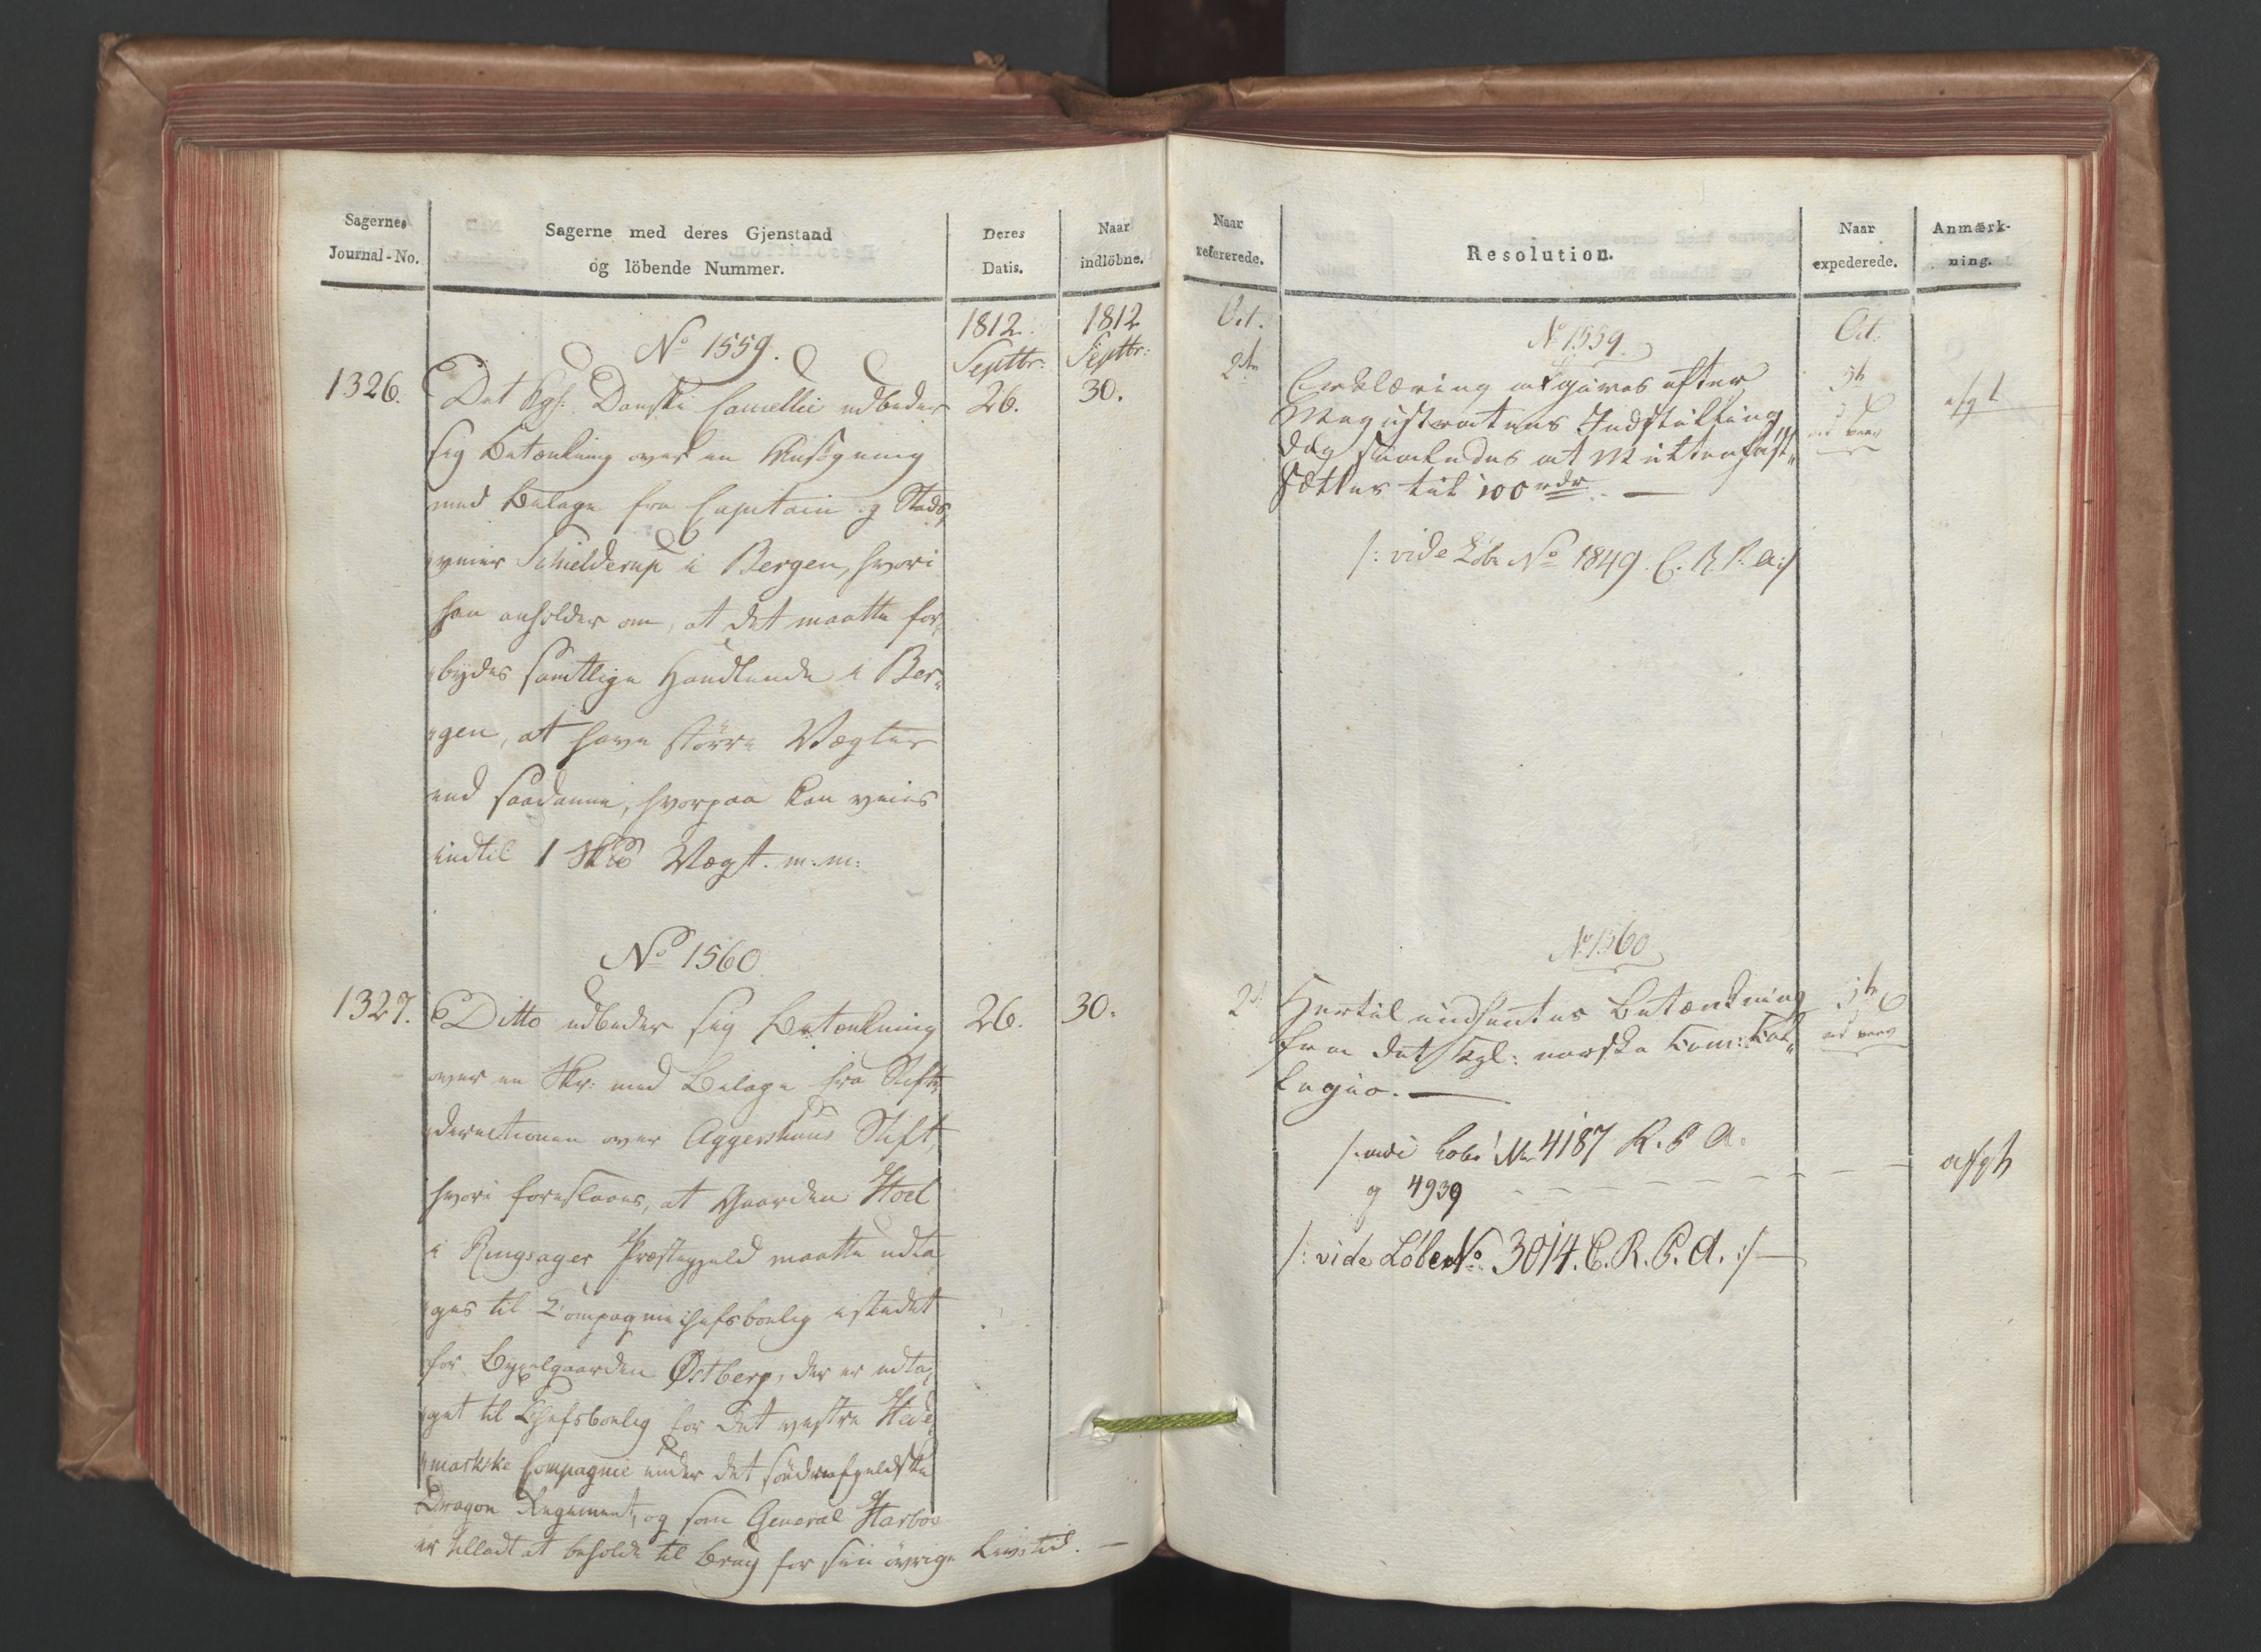 Sagernes
Journal-No.
Sagerne med deres Gjenstand
og löbende Nummer.
Deres
Datis.
Naar
indlöbne.
1812.
Septbr:
1812
Septbr:
No 1559.
1326.
Det Kgl. Danske Cancellie udbeder
26.
30.
sig Betænkning over en Ansøgning
med Bilage fra Capitain og Stads,,
veier Schielderup i Bergen, hvori
han anholder om, at det maatte for,,
,,bydes samtlige Handlende i Ber,,
,,gen, at have større Vægter
end saadanne, hvorpaa kan veies
indtil 1 Sk℔ Vægt. m: m:
No 1560.
1327.
Ditto udbeder sig Betænkning
26.
30.
over en Skr: med Bilage fra Stifts
directionen over Aggershuus Stift,
hvori foreslaaes, at Gaarden Hoel
i Ringsager Præstegjeld maatte udta
,,ges til Compagniechefsbolig istedet
for Bygselgaarden Østberg, der er udta,,
,,get til Chefsbolig for det vestre Hede,,
,,markske Compagnie under det söndenfjeldske
Dragon Regiment, og som General Harboe
er tilladt at beholde til Brug for sin övrige Livstid. —
Naar
refererede.
Resolution.
Naar
expederede.
Anmærk-
ning.
Oct.
2den
No 1559.
Oct.
5te
Erklæring afgives efter
Magistratens Indstilling
dog saaledes at Mulkten fast,,
sættes til 100 rdr. —
afgt
/: vide Löbe No 1849. C. R. P. A :/
No 1560
2d
Hertil indhentes Betænkning
5te
fra det Kgl: norske Kam: Kol,,
legio. —
/: vide Löbe No 4187 R. P. A.
og 4939 - - - - - - - -
afgt
/: vide Löbe No. 3014. C. R. P. A. :/ —